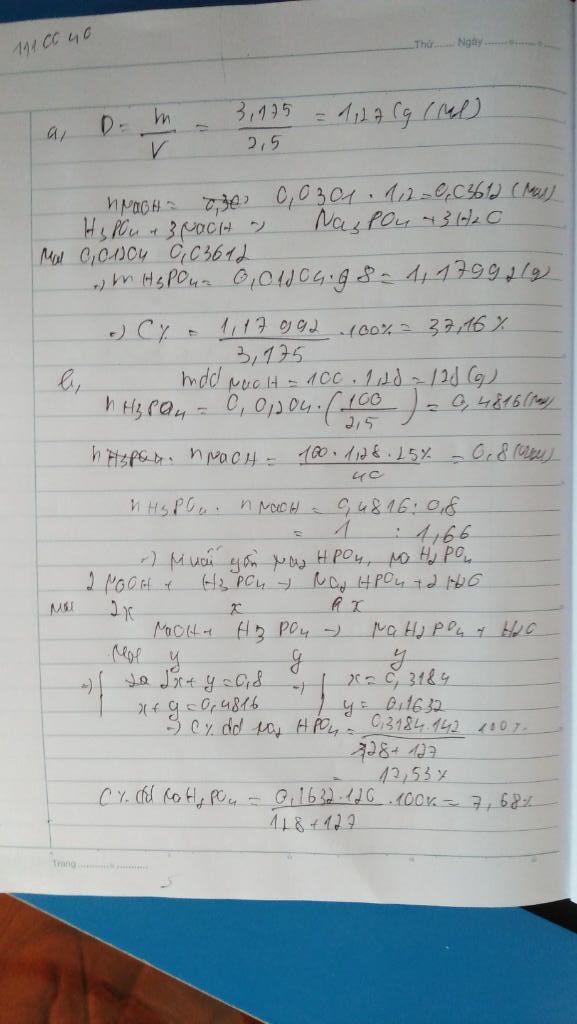 Thứ...... Ngày..................
a, D = m/V = 3,175/2,5 = 1,27 (g/ml)
nNaOH = 0,0301 . 1,2 = 0,03612 (mol)
H3PO4 + 3NaOH -> Na3PO4 + 3H2O
Mol 0,01204 0,03612
-> mH3PO4 = 0,01204.98 = 1,17992 (g)
-> C% = 1,17992/3,175 .100% = 37,16%
b, mdd NaOH = 100.1,28 = 128 (g)
nH3PO4 = 0,01204.(100/2,5) = 0,4816 (mol)
nNaOH = 100.1,28.25%/40 = 0,8 (mol)
nH3PO4 : nNaOH = 0,4816 : 0,8
= 1 : 1,66
-> Muối gồm Na2HPO4, NaH2PO4
2NaOH + H3PO4 -> Na2HPO4 + 2H2O
Mol 2x x x
NaOH + H3PO4 -> NaH2PO4 + H2O
Mol y y y
-> { 2x + y = 0,8 -> { x = 0,3184
x + y = 0,4816 y = 0,1632
-> C% dd Na2HPO4 = 0,3184.142/128+127 100%
= 17,53%
C% dd NaH2PO4 = 0,1632.120/128+127 .100% = 7,68%
Trang ..................